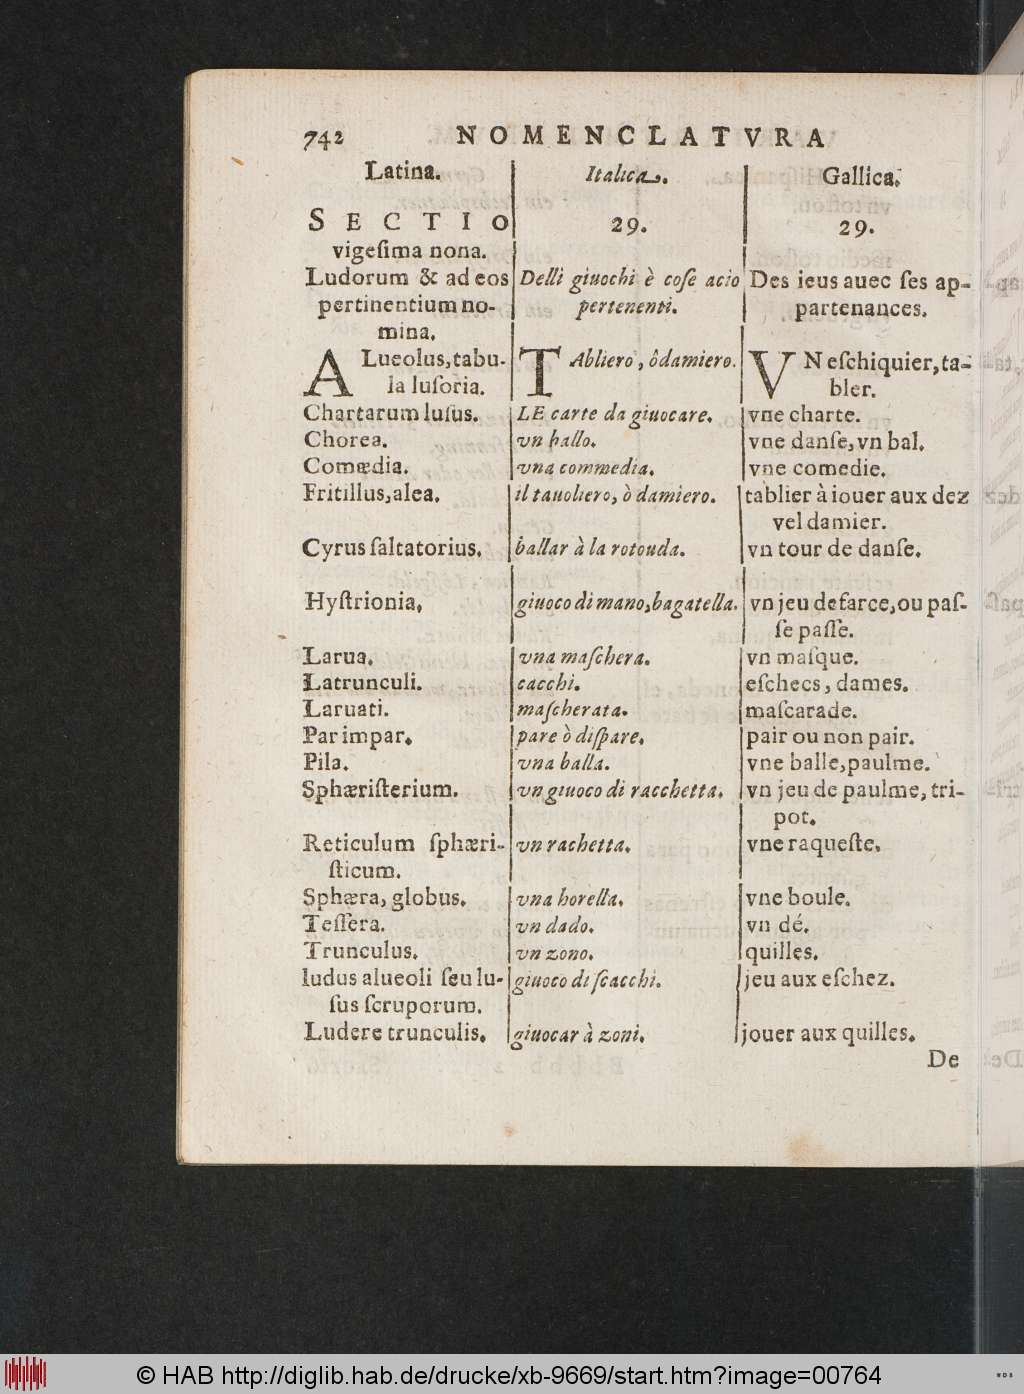 742 NOMENCLATVRA
Latina. Italica. Gallica.
SECTIO 29. 29.
vigeſima nona.
Ludorum & ad eos Delli giuochi è coſe acio Des ieus auec ſes ap-
pertinentium no- pertenenti. partenances.
mina.
ALueolus, tabu- TAbliero, ôdamiero. VN eſchiquier, ta-
la luſoria. bler.
Chartarum luſus. LE carte da giuocare. vne charte.
Chorea. vn ballo. vne danſe, vn bal.
Comœdia. vna commedia. vne comedie.
Fritillus, alea. il tauoliero, ò damiero. tablier à iouer aux dez
vel damier.
Cyrus ſaltatorius. ballar à la rotouda. vn tour de danſe.
Hyſtrionia, giuoco di mano, bagatella. vn jeu defarce, ou paſ-
ſe paſſe.
Larua. vna maſchera. vn maſque.
Latrunculi. cacchi. eſchecs, dames.
Laruati. maſcherata. maſcarade.
Par impar. pare ò diſpare. pair ou non pair.
Pila. vna balla. vne balle, paulme.
Sphæriſterium. vn giuoco di racchetta. vn jeu de paulme, tri-
pot.
Reticulum ſphæri- vn rachetta. vne raqueſte.
ſticum.
Sphæra, globus. vna borella. vne boule.
Teſſera. vn dado. vn dé.
Trunculus. vn zono. quilles.
ludus alueoli ſeu lu- giuoco di ſcacchi. jeu aux eſchez.
ſus ſcruporum.
Ludere trunculis. giuocar à zoni. jouer aux quilles.
De
© HAB http://diglib.hab.de/drucke/xb-9669/start.htm?image=00764